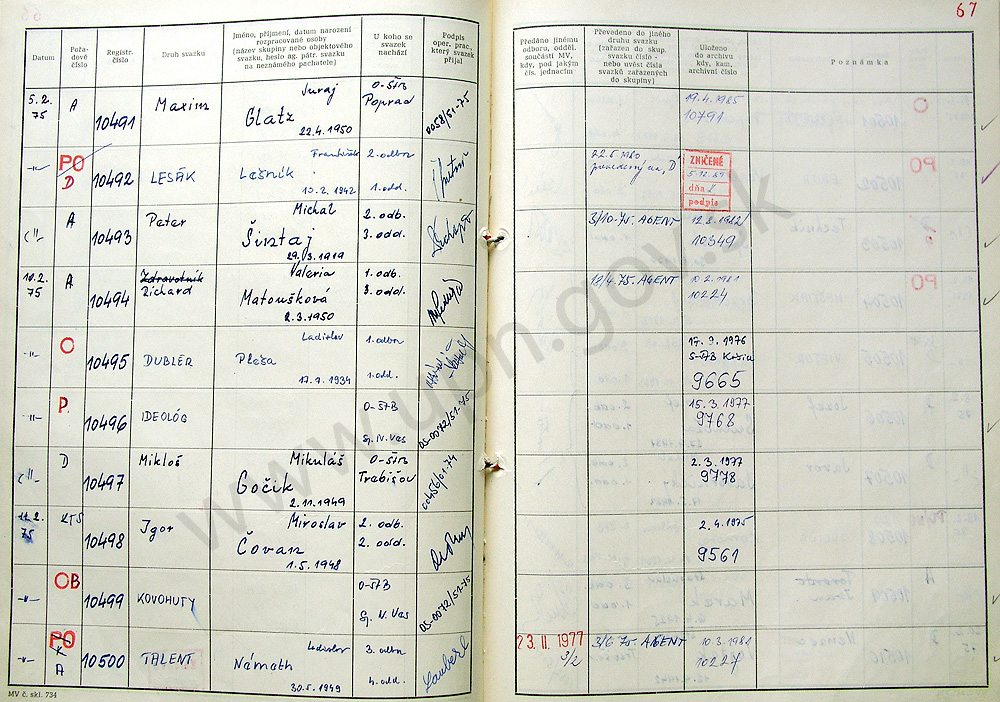 67
Datum
Pořa-
dové
číslo
Registr.
číslo
Druh svazku
Jméno, příjmení, datum narození
rozpracované osoby
(název skupiny nebo objektového
svazku, heslo ag. pátr. svazku
na neznámého pachatele)
U koho se
svazek
nachází
Podpis
oper. prac.,
který svazek
přijal
Předáno jinému
odboru, odděl.
součásti MV,
kdy, pod jakým
čís. jednacím
Převedeno do jiného
druhu svazku
(zařazen do skup.
svazku číslo -
nebo uvést čísla
svazků zařazených
do skupiny)
Uloženo
do archivu
kdy, kam,
archivní číslo
Poznámka
5.2.
75
A
10491
Maxim
Juraj
Glatz
22.4.1950
O-ŠtB
Poprad
0058/51-75
19.4.1985
10791
-"-
PO
D
10492
LESÁK
František
Lešník
10.2.1942
2. odbor
1. odd.
22.5.1980
ZNIČENÉ
dňa
podpis
-"-
A
10493
Peter
Michal
Šintaj
29.3.1919
2. odb.
3. odd.
3/10-75. AGENT
12.8.1982
10349
10.2.
75
A
10494
Zdravotník
Richard
Valeria
Matoušková
2.3.1950
1. odb.
3. odd.
18/4-75. AGENT
10.2.1981
10224
-"-
O
10495
DUBLER
Ladislav
Pleša
17.7.1934
1. odbor
1. odd.
17.9.1976
9665
-"-
P.
10496
IDEOLÓG
O-ŠTB
Sp. N. Ves
OS-0072/51-75
15.3.1977
9768
-"-
D
10497
Mikloš
Mikuláš
Gočik
2.11.1949
O-ŠtB
Trebišov
2.3.1977
9778
11.2.
75
KTS
10498
Igor
Miroslav
Čovan
1.5.1948
2. odb.
2. odd.
2.4.1975
9561
-"-
OB
10499
KOVOHUTY
O-ŠTB
Sp. N. Ves
OS-0072/51-75
-"-
PO
A
10500
TALENT
Ladislav
Németh
30.5.1949
3. odbor
4. odd.
23. II. 1977
3/2
3/6-75. AGENT
10.3.1981
10227
MV č. skl. 734
www.upn.gov.sk